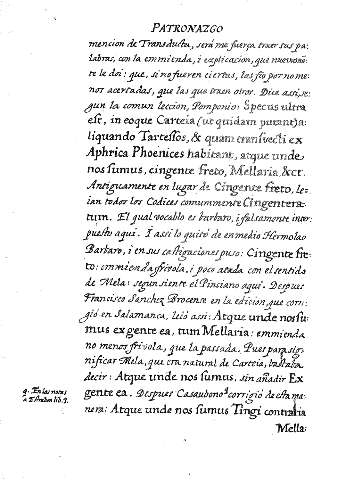 PATRONAZGO
mencion de Transducta, será me fuerça traer sus pa-
labras, con la emmienda, i explicacion, que nuevamẽ-
te le doi: que, si no fueren ciertas, las fio por no me-
nos acertadas, que las que traen otros. Dice assi, se-
gun la comun leccion, Pomponio: Specus ultra
est, in eoque Carteia (ut quidam putant) a-
liquando Tartessos, & quam transvecti ex
Aphrica Phoenices habitant, atque unde
nos sumus, cingente freto, Mellaria &ct.
Antiguamente en lugar de Cingente freto, le-
ian todos los Codices comunmente Cingentera-
tum. El qual vocablo es barbaro, i falsamente inter-
puesto aqui. I assi lo quitò de enmedio Hermolao
Barbaro, i en sus castigaciones puso: Cingente fre-
to: emmienda frivola, i poco atada con el sentido
de Mela: segun siente el Pinsiano aqui. Despues
Francisco Sanchez Brocense en la edicion, que corri-
giò en Salamanca, leiò assi: Atque unde nos su-
mus ex gente ea, tum Mellaria: emmienda
no menos frivola, que la passada. Pues para sig-
nificar Mela, que era natural de Carteia, bastaba
decir: Atque unde nos sumus, sin añadir Ex
gente ea. Despues Casaubono q corrigiò de esta ma-
nera: Atque unde nos sumus Tingi contraria
q. En las notas
a Estrabon lib. 3.
Mella-